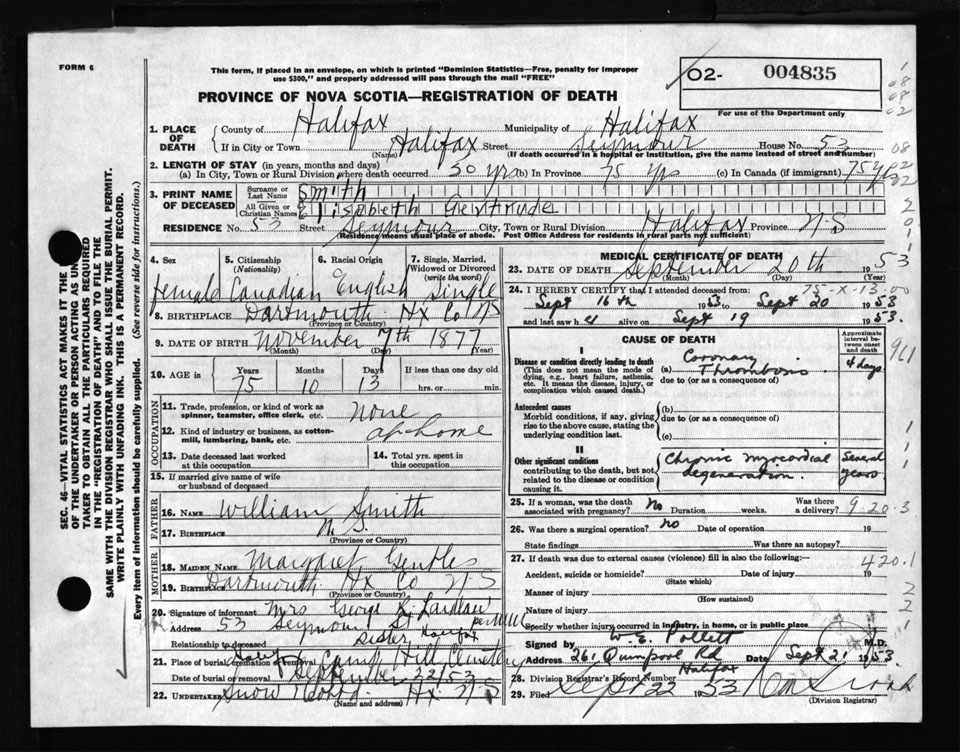 FORM 6
This form, if placed in an envelope, on which is printed "Dominion Statistics—Free, penalty for improper
use $300," and properly addressed will pass through the mail "FREE"
O2- 004835
PROVINCE OF NOVA SCOTIA—REGISTRATION OF DEATH
For use of the Department only
1. PLACE OF DEATH { County of Halifax Municipality of Halifax
If in City or Town Halifax (Name) Street Seymour House No. 53
(If death occurred in a hospital or institution, give the name instead of street and number)
2. LENGTH OF STAY (in years, months and days)
(a) In City, Town or Rural Division where death occurred 50 yrs (b) In Province 75 yrs (c) In Canada (if immigrant) 75 yrs
3. PRINT NAME OF DECEASED { Surname or Last Name Smith
All Given or Christian Names Elisabeth Gertrude
RESIDENCE No. 53 Street Seymour City, Town or Rural Division Halifax Province N-S
(Residence means usual place of abode. Post Office Address for residents in rural parts not sufficient)
4. Sex female
5. Citizenship (Nationality) Canadian
6. Racial Origin English
7. Single, Married, Widowed or Divorced (write the word) Single
8. BIRTHPLACE Dartmouth Hx Co NS
(Province or Country)
9. DATE OF BIRTH November 7th 1877
(Month) (Day) (Year)
10. AGE in { Years 75 Months 10 Days 13 If less than one day old
hrs. or min.
OCCUPATION
11. Trade, profession, or kind of work as spinner, teamster, office clerk, etc. None
12. Kind of industry or business, as cotton-mill, lumbering, bank, etc. at home
13. Date deceased last worked at this occupation
14. Total yrs. spent in this occupation
15. If married give name of wife or husband of deceased
FATHER
16. NAME William Smith
17. BIRTHPLACE N.S.
(Province or Country)
MOTHER
18. MAIDEN NAME Margaret Gentles
19. BIRTHPLACE Dartmouth Hx Co NS
(Province or Country)
20. Signature of informant Mrs George R. Laidlaw
Address 53 Seymour St Halifax
Relationship to deceased Sister
21. Place of burial, cremation or removal Camp Hill Cemetery
Date of burial or removal September 22/53
22. UNDERTAKER Snow Hx. N-S
(Name and address)
MEDICAL CERTIFICATE OF DEATH
23. DATE OF DEATH September 20th 1953
(Month) (Day) (Year)
75-X-13-00
24. I HEREBY CERTIFY that I attended deceased from:
Sept 16th 1953 to Sept 20 1953
and last saw h er alive on Sept 19 1953.
CAUSE OF DEATH
Approximate interval between onset and death
I
Disease or condition directly leading to death
(This does not mean the mode of dying, e.g., heart failure, asthenia, etc. It means the disease, injury, or complication which caused death.)
(a) Coronary Thrombosis 4 days
due to (or as a consequence of)
Antecedent causes
Morbid conditions, if any, giving rise to the above cause, stating the underlying condition last.
(b)
due to (or as a consequence of)
(c)
II
Other significant conditions
contributing to the death, but not related to the disease or condition causing it.
Chronic myocardial degeneration. Several years
25. If a woman, was the death associated with pregnancy? No Duration weeks. Was there a delivery?
9-20-3
26. Was there a surgical operation? No Date of operation 19
State findings Was there an autopsy?
27. If death was due to external causes (violence) fill in also the following:—
420.1
Accident, suicide or homicide? Date of injury 19
(State which)
Manner of injury
(How sustained)
Nature of injury
Specify whether injury occurred in industry, in home, or in public place
Signed by W. E. Pollett M.D.
Address 261 Quinpool Rd Halifax Date Sept 21 1953.
28. Division Registrar's Record Number
29. Filed Sept 22 1953
(Division Registrar)
SEC. 46—VITAL STATISTICS ACT MAKES IT THE DUTY
OF THE UNDERTAKER OR PERSON ACTING AS UNDER-
TAKER TO OBTAIN ALL THE PARTICULARS REQUIRED
IN THE "REGISTRATION OF DEATH" AND TO FILE THE
SAME WITH THE DIVISION REGISTRAR WHO SHALL ISSUE THE BURIAL PERMIT.
WRITE PLAINLY WITH UNFADING INK. THIS IS A PERMANENT RECORD.
Every item of information should be carefully supplied. (See reverse side for instructions.)